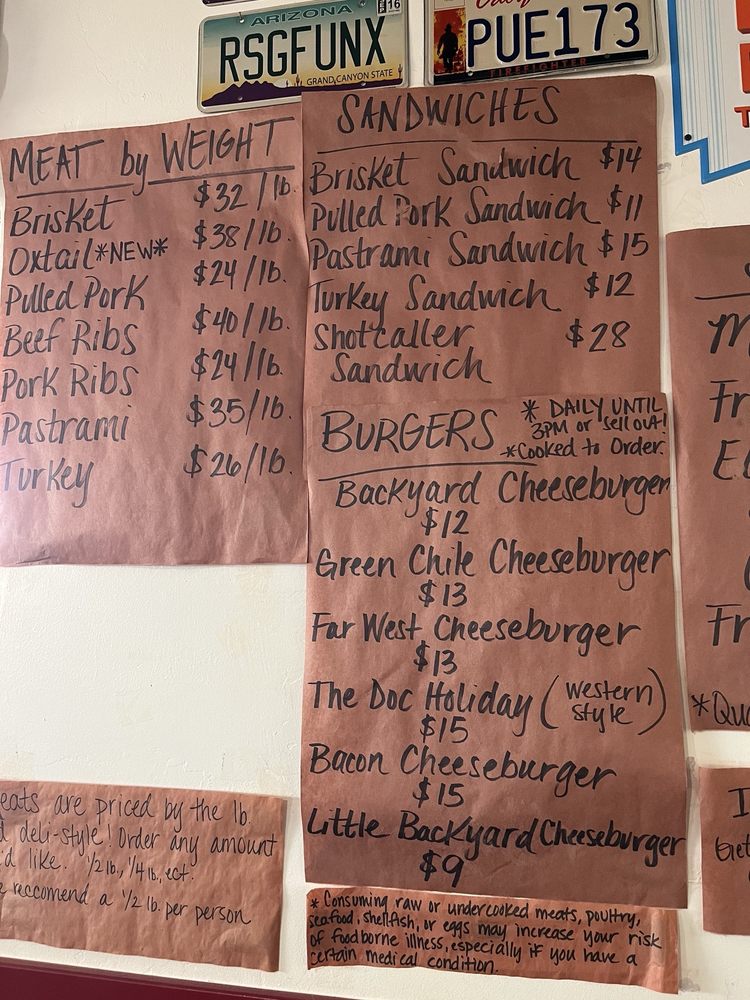 ARIZONA
16
RSGFUNX
GRAND CANYON STATE
PUE173
FIREFIGHTER
MEAT by WEIGHT
Brisket $32/lb.
Oxtail *NEW* $38/lb.
Pulled Pork $24/lb.
Beef Ribs $40/lb.
Pork Ribs $24/lb.
Pastrami $35/lb.
Turkey $26/lb.
SANDWICHES
Brisket Sandwich $14
Pulled Pork Sandwich $11
Pastrami Sandwich $15
Turkey Sandwich $12
Shotcaller $28
Sandwich
BURGERS
* DAILY UNTIL
3PM or sell out!
*Cooked to Order.
Backyard Cheeseburger
$12
Green Chile Cheeseburger
$13
Far West Cheeseburger
$13
The Doc Holiday (western
style)
$15
Bacon Cheeseburger
$15
Little Backyard Cheeseburger
$9
* Consuming raw or undercooked meats, poultry,
seafood, shellfish, or eggs may increase your risk
of foodborne illness, especially if you have a
certain medical condition.
eats are priced by the lb.
d deli-style! Order any amount
'd like. 1/2 lb., 1/4 lb., ect.
reccomend a 1/2 lb. per person
Fr
Fr
*Qu
Get